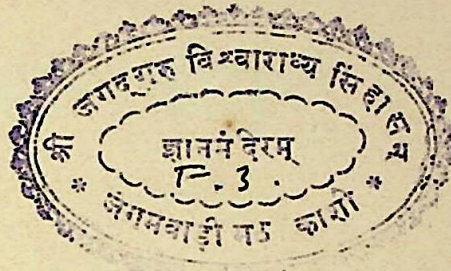 श्री जगद्गुरु विश्वाराध्य सिंहासन
ज्ञानमंदिरम्
F. 3.
* जंगमवाड़ी मठ काशी *